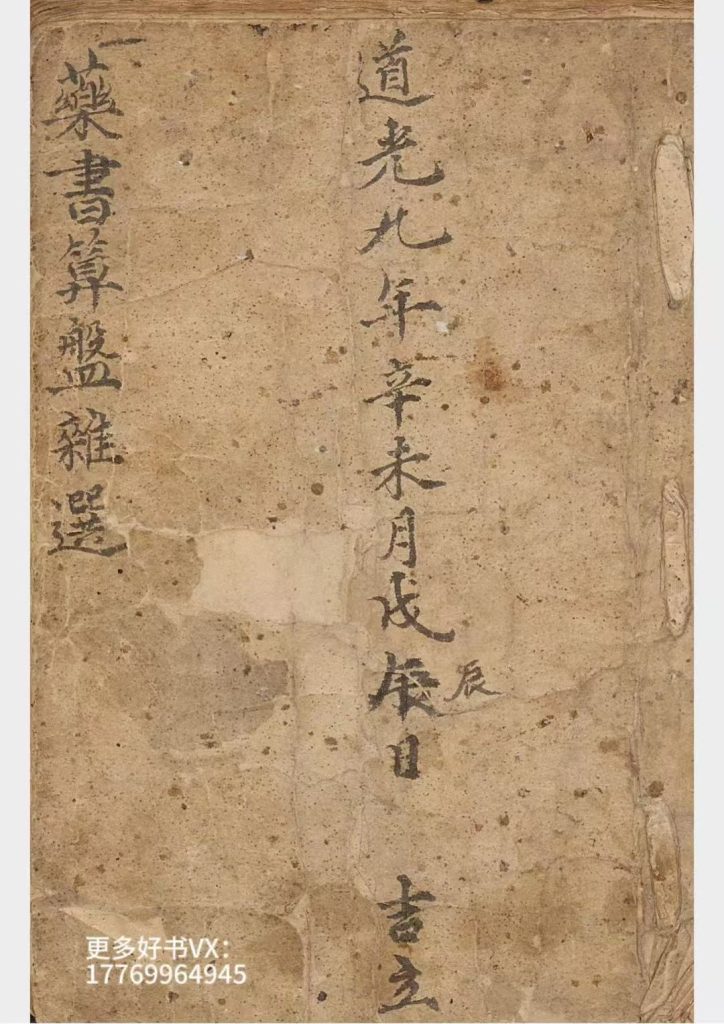 道光九年辛未月戊辰日 吉立
辰
一藥書算盤雜選
更多好书VX:
17769964945